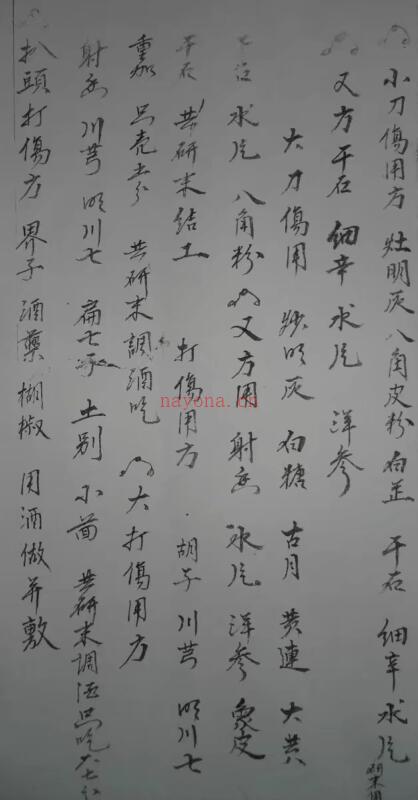 小刀傷用方 灶明灰 八角皮粉 白芷 干石 細辛 水片 研末用
又方 干石 細辛 水片 洋参
大刀傷用 炒明灰 白糖 古月 黄連 大黄
水片 八角粉 又方用 射香 冰片 洋参 象皮
干石 共研末 结工 打傷用方 胡子 川芎 明川七
共研末調酒吃 大打傷用方
射香 川芎 明川七 扁七 土别 小茴 共研末調酒吃
扒頭打傷方 界子 酒藥 椒 用酒做并敷
nayona.cn